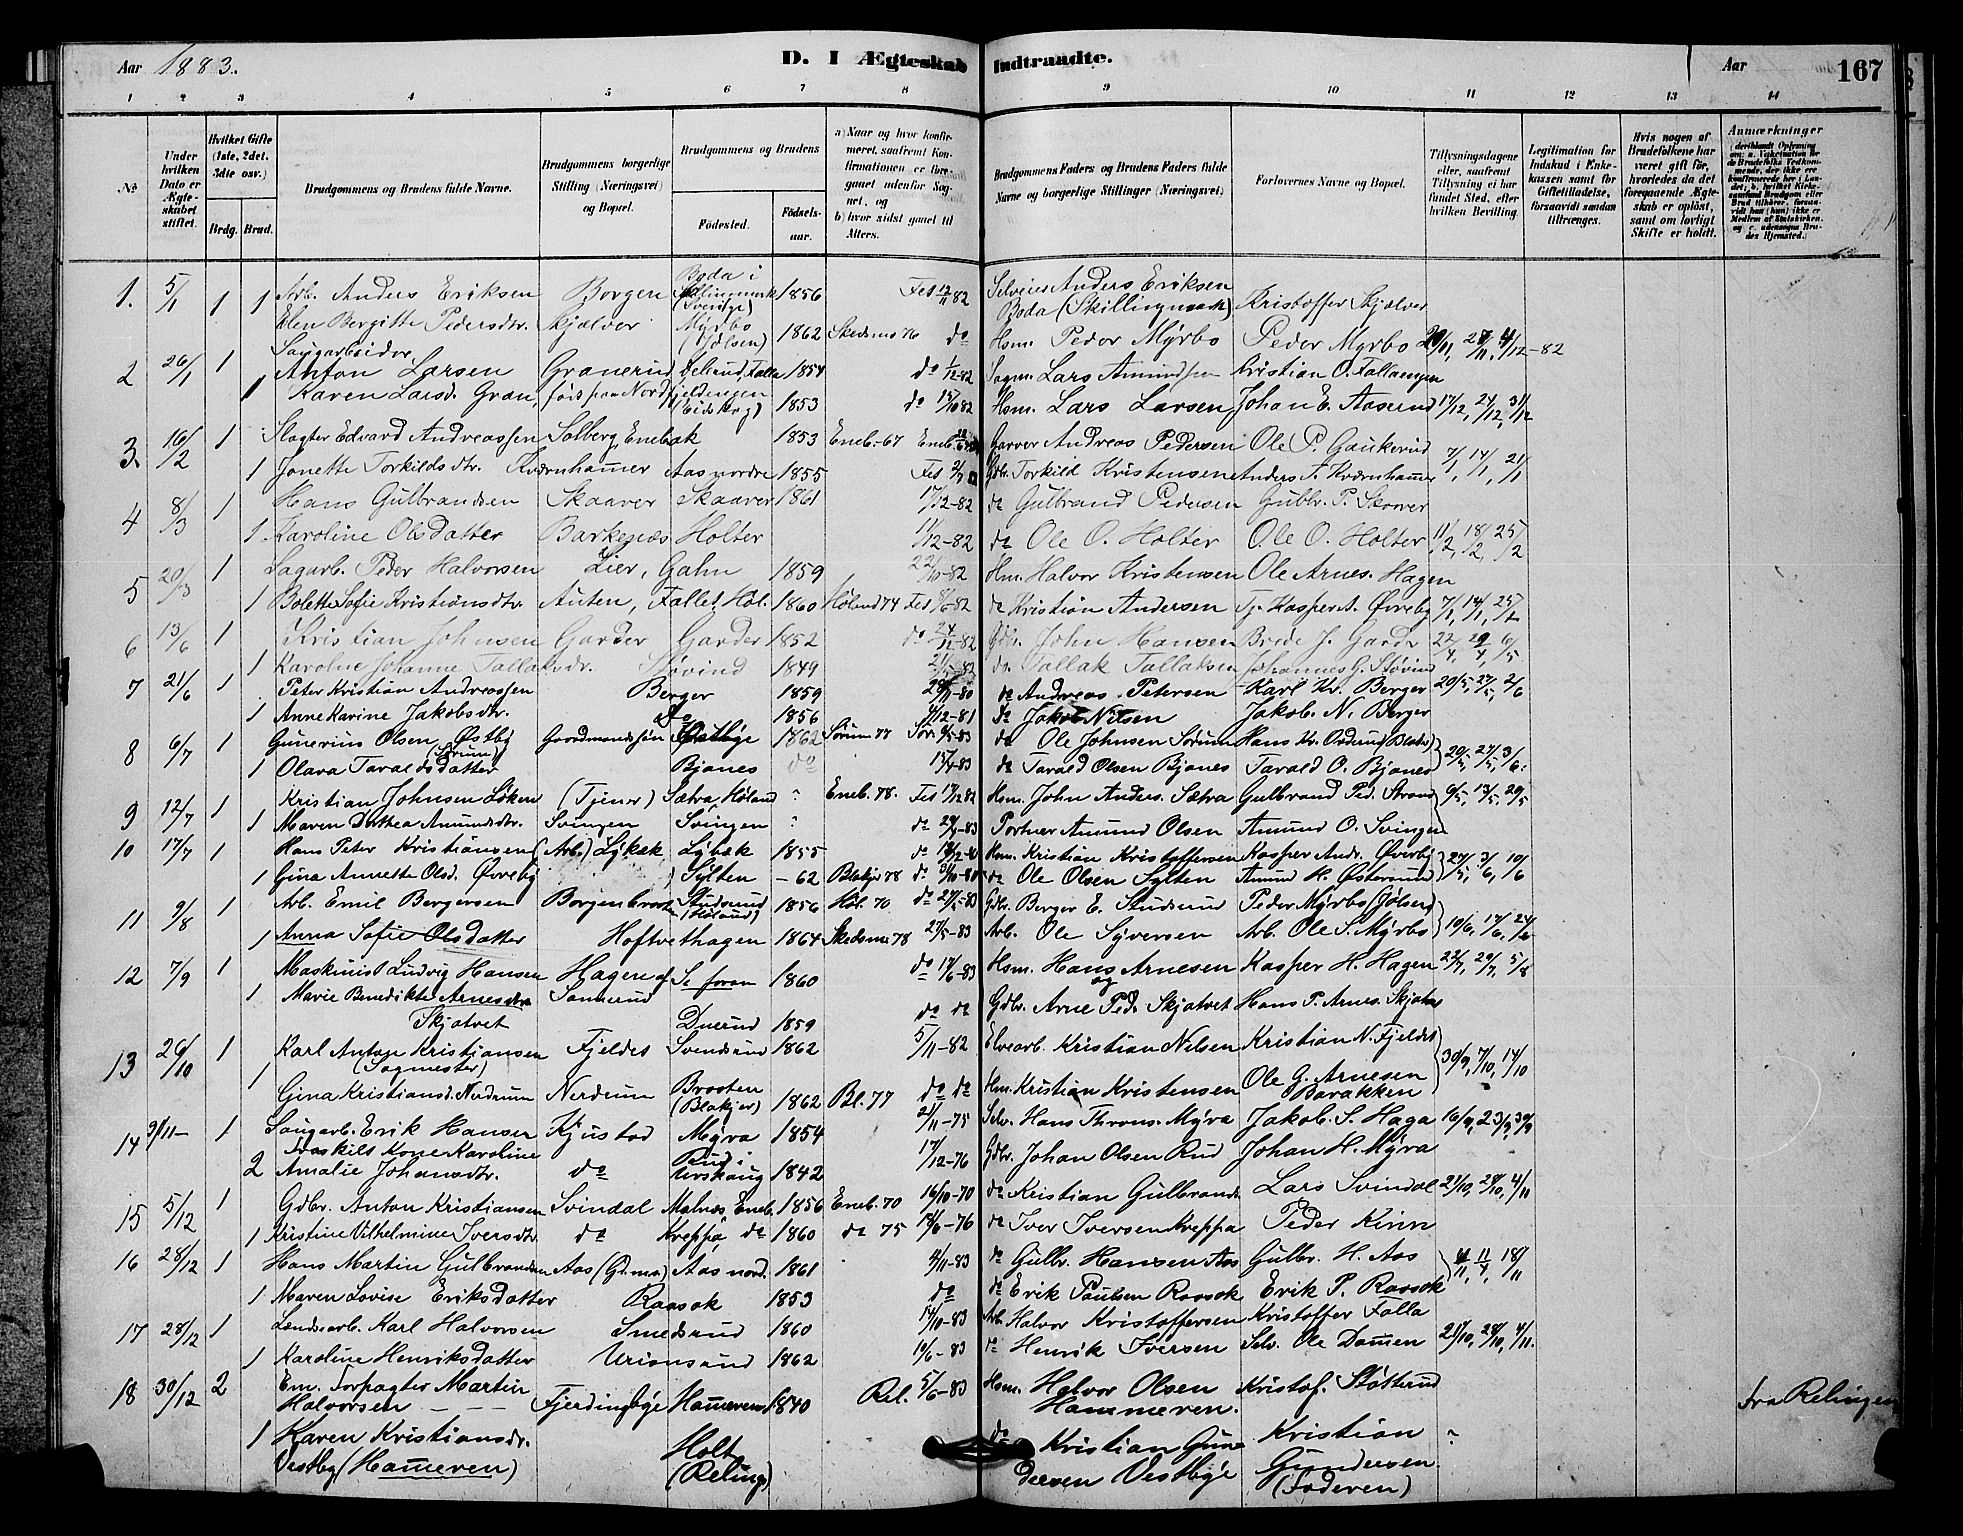 Aar 1883. D. I Ægteskab Indtraadte. Aar 167
1 2 3 4 5 6 7 8 9 10 11 12 13 14
No
Under hvilken Dato er Ægteskabet stiftet.
Hvilket Gifte (1ste, 2det, 3die osv.)
Brdg. Brud.
Brudgommens og Brudens fulde Navne.
Brudgommens borgerlige Stilling (Næringsvei) og Bopæl.
Brudgommens og Brudens
Fødested. Fødselsaar.
a) Naar og hvor konfirmeret, saafremt Konfirmationen er foregaaet udenfor Sognet, og
b) hvor sidst gaaet til Alters.
Brudgommens Faders og Brudens Faders fulde Navne og borgerlige Stillinger (Næringsvei.)
Forlovernes Navne og Bopæl.
Tillysningsdagene eller, saafremt Tillysning ei har fundet Sted, efter hvilken Bevilling.
Legitimation for Indskud i Enkekassen samt for Giftetilladelse, forsaavidt saadan tiltrænges.
Hvis nogen af Brudefolkene har været gift før, hvorledes da det foregaaende Ægteskab er opløst, samt om lovligt Skifte er holdt.
Anmærkninger
1. 5/1 1 1 Arb. Anders Eriksen Borgen Boda i (Skillingmark Sverige) 1856 Fet 82 Selveier Anders Eriksen Boda (Skillingmark) Kristoffer Skjælver
Elen Bergitte Pedersdtr. Skjælver Myrbo (Jølsen) 1862 Skedsmo 76 do Hsm. Peder Myrbo Peder Myrbo 4/12-82
2 26/1 1 Saugarbeider Anton Larsen Granerud Falla 1854 do 1/12-82 Sagm. Lars Amundsen Kristian O. Fallaengen
1 Karen Larsd. Gran, 1853 do 15/10 82 Hsm. Lars Larsen Johan E. Aaserud 17/12, 24/12, 31/12
3. 16/2 1 Slagter Edvard Andreassen Solberg Enebak 1853 Eneb.-67 Eneb. Garver Andreas Pedersen Ole P. Gaukerud
1 Jonette Torkildsdtr. Kværnhamer Aas nordre 1855 Fet Gdb. Torkild Kristensen Anders T. Kværnhamer 7/1, 14/1, 21/1
4 8/3 1 Hans Gulbrandsen Skaaver Skaaver 1861 17/12-82 do Gulbrand Pedersen Gulbr. P. Skaaver
1 Karoline Olsdatter Barkenæs Holter 1/12-82 do Ole O. Holter Ole O. Holter 11/2, 18/2, 25/2
5 20/3 1 Sagarb. Peder Halvorsen Lier, Gahn 1859 22/10-82 Hm. Halvor Kristensen Ole Arnes. Hagen
1 Bolette Sofie Kristiansdtr. Auten, Fallet Høl. 1860 Høland 74 Fet 82 do Kristian Andersen Tj. Kasper A. Øvreby 7/1, 14/1, 25/2
6 13/6 1 Kristian Johnsen Garder Garder 1852 do 82 Gdbr. John Hansen Brede J. Garder 22/4, 29/4, 6/5
1 Karoline Johanne Tallaksdr. Støvind 1849 do Tallak Tallaksen Johannes G. Støvind
7 21/6 1 Peter Kristian Andreassen Berger 1859 80 do Andreas Petersen Karl Kr. Berger 20/5, 27/5, 2/6
1 Anne Karine Jakobsdtr. Do 1856 4/12-81 do Jakob Nilsen Jakob. N. Berger
8 6/7 1 Gunerius Olsen Østby (Sørum) Gaardmandssøn Østbye 1862 Sørum 77 Sør. 83 do Ole Johnsen Sørum Hans Kr. Orderud (Blak.)
1 Olava Taraldsdatter Bjanes do 15/4 83 do Tarald Olsen Bjanes Tarald O. Bjanes 20/5, 27/5, 3/6.
9 12/7 1 Kristian Johnsen Løken (Tjener) Sætra, Høland ? Eneb. 78. Fet 17/12 82 Hsm. John Anders. Sætra Gulbrand Ped. Strand 9/5, 13/5, 20/5
1 Maren Dorthea Amundsdtr. Svingen Svingen ? do 83 Portner Amund Olsen Amund O. Svingen
10 17/7 1 Hans Peter Kristiansen (Arb.) Lybek Lybæk 1855 do Hsm. Kristian Kristoffersen Kasper Andr. Øverby
1 Gina Annette Olsd. Øvreby Sylten -62 Blakjer 78 do do Ole Olsen Sylten Amund H. Østersund 27/5, 3/6, 10/6
11 9/8 1 Arb. Emil Bergersen Borgenbraaten Studsrud (Høland) 1856 Høl. 70 do 27/5-83 Gdbr. Berger E. Studsrud Peder Myrbo (Jølsen)
1 Anna Sofie Olsdatter Hoftvethagen 1864 Skedsmo 78 27/5-83 Arb. Ole Syversen Arb. Ole S. Myrbo 10/6, 17/6, 24/6
12 7/9 1 Maskinist Ludvig Hansen Hagen af Se foran 1860 do 17/6-83 Hsm. Hans Arnesen Kasper H. Hagen 22/7, 29/7, 5/8
1 Marie Benedikte Arnesdtr. Skjatvet Sannerud Duerud 1859 do do og Gdbr. Arne Ped. Skjatvet Hans P. Arnes. Skjatvet
13 26/10 1 Karl Anton Kristiansen (Sagmester) Fjeldet Svendsrud 1862 5/11-82 Elvearb. Kristian Nilsen Kristian N. Fjeldet
1 Gina Kristiansd. Nerdrum Nerdrum Braaten (Blakjer) 1862 Bl. 77 do do Hm. Kristian Kristensen Ole G. Arnesen Barakken 30/9, 7/10, 14/10
14 9/11- 1 Saugarb. Erik Hansen Kjustad Myra 1854 21/11-75 Selv. Hans Throns. Myra Jakob. S. Haga 16/9, 23/9, 30/9
2 Fraskilt Kone Karoline Amalie Johansdtr. do Rud i Urskoug 1842 17/12-76 Gdbr. Johan Olsen Rud Johan H. Myra
15 5/12 1 Gdbr. Anton Kristiansen Svindal Malnes Eneb. 1856 Eneb. 70 16/10-70 do Kristian Gulbrands. Lars Svindal 21/10, 28/10, 4/11
1 Kristine Vilhelmine Iversdtr. do Kreppa do 1860 do 75 76 do Iver Iversen Kreppa Peder Kinn
16 28/12 1 Hans Martin Gulbrandsen Aas (Gdma) Aas nord. 1861 4/11-83 do Gulbr. Hansen Aas Gulbr. H. Aas 4/11, 11/11, 18/11
1 Maren Lovise Eriksdatter Raasok 1853 do do Erik Paulsen Raasok Erik P. Raasok
17 28/12 1 Landsearb. Karl Halvorsen Smedsrud 1860 14/10-83 Arb. Halvor Kristoffersen Kristoffer Falla
1 Karoline Henriksdatter Uriansrud 1862 10/6-83 do Henrik Iversen Selv. Ole Damen 21/10, 28/10, 4/11.
18 30/12 2 Em. Forpagter Martin Halvorsen Fjerdingbye Hameren 1840 Rel. 5/6-83 Hsm. Halvor Olsen Hammeren. Kristof. Støtterud fra Relingen
1 Karen Kristiansdr. Vestby (Hameren) Holt (Reling) do Kristian Gundersen Vestbye Kristian Gundersen (Faderen) ?